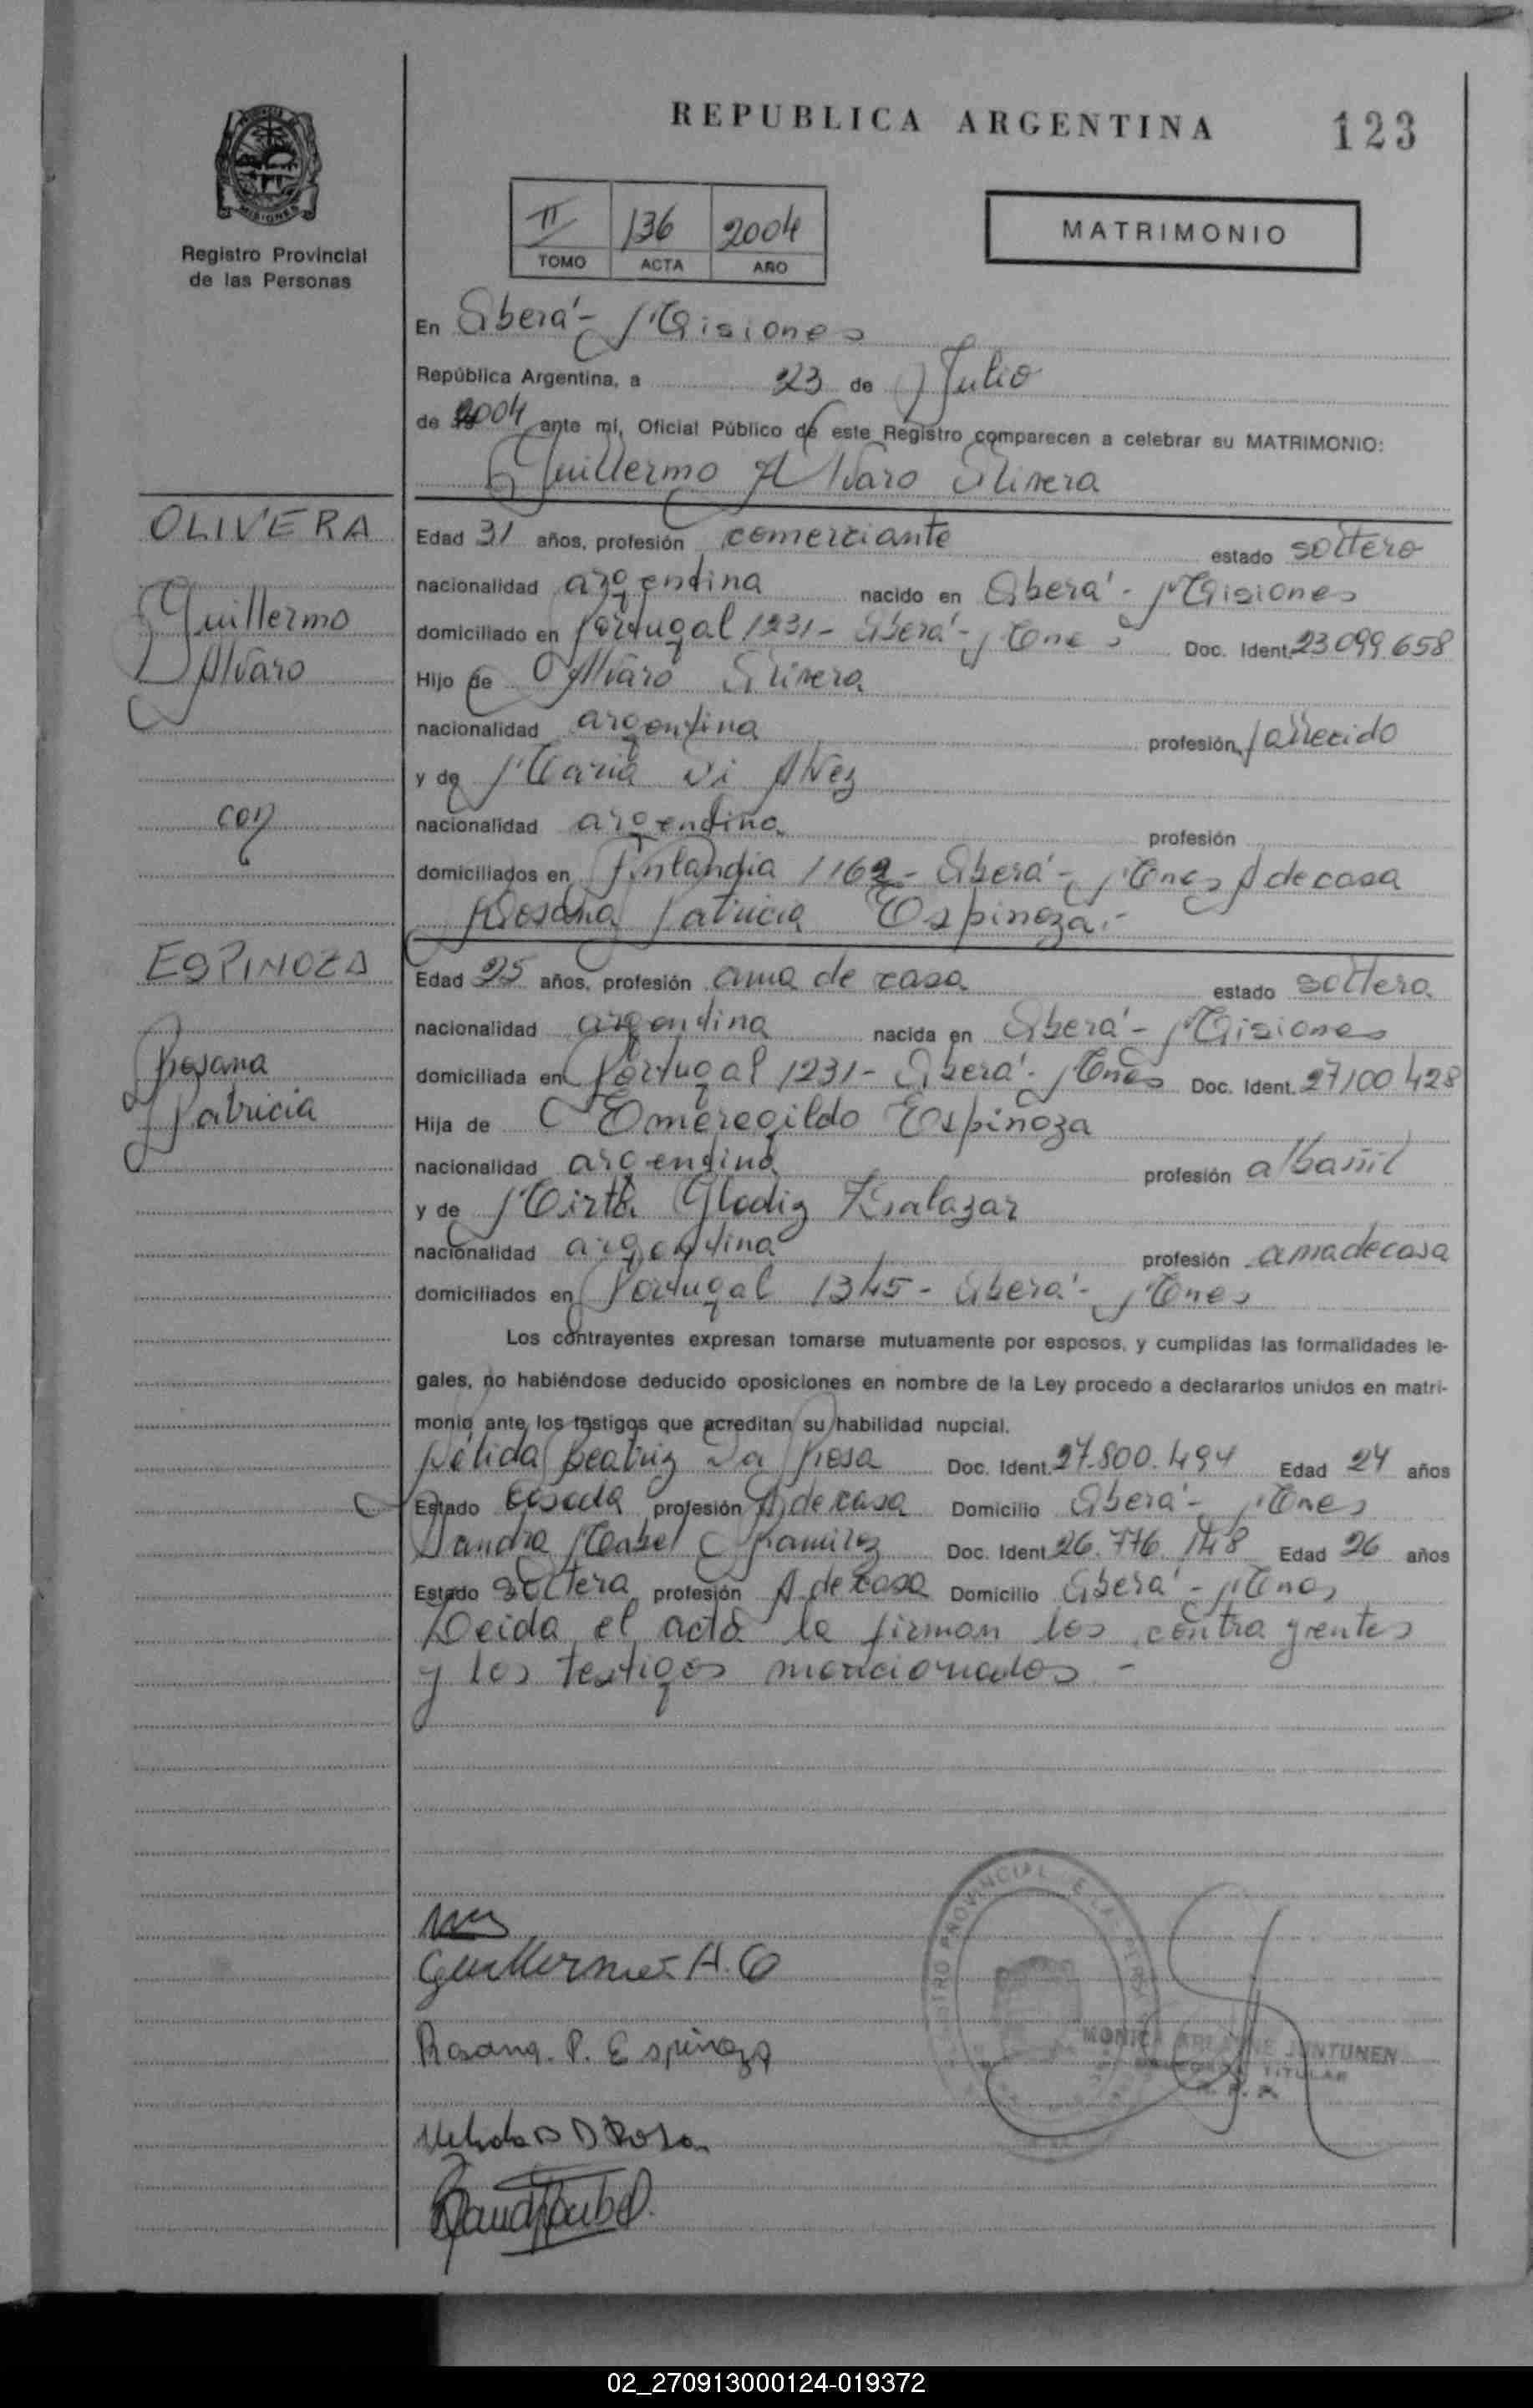 REPUBLICA ARGENTINA
123
MISIONES
Registro Provincial
de las Personas
II 136 2004
TOMO ACTA AÑO
MATRIMONIO
En Oberá - Misiones
República Argentina, a 23 de Julio
de 2004 ante mí, Oficial Público de este Registro comparecen a celebrar su MATRIMONIO:
Guillermo Alvaro Olivera
OLIVERA
Guillermo
Alvaro
con
ESPINOZA
Rosana
Patricia
Edad 31 años, profesión comerciante estado soltero
nacionalidad argentina nacido en Oberá - Misiones
domiciliado en Portugal 1231 - Oberá - Mnes Doc. Ident. 23.099.658
Hijo de Alvaro Olivera
nacionalidad argentina profesión fallecido
y de Maria Alvez
nacionalidad argentina profesión
domiciliados en Finlandia 1162 - Oberá - Mnes A de casa
Rosana Patricia Espinoza.-
Edad 25 años, profesión ama de casa estado soltera
nacionalidad argentina nacida en Oberá - Misiones
domiciliada en Portugal 1231 - Oberá - Mnes Doc. Ident. 27.100.428
Hija de Emeregildo Espinoza
nacionalidad argentina profesión albañil
y de Mirta Gladiz Zalazar
nacionalidad argentina profesión ama de casa
domiciliados en Portugal 1345 - Oberá - Mnes
Los contrayentes expresan tomarse mutuamente por esposos, y cumplidas las formalidades le-
gales, no habiéndose deducido oposiciones en nombre de la Ley procedo a declararlos unidos en matri-
monio ante los testigos que acreditan su habilidad nupcial.
Nélida Beatriz Da Rosa Doc. Ident. 27.800.494 Edad 24 años
Estado casada profesión A de casa Domicilio Oberá - Mnes
Sandra Mabel Ramirez Doc. Ident. 26.776.148 Edad 26 años
Estado soltera profesión A de casa Domicilio Oberá - Mnes
Leida el acta la firman los contrayentes
y los testigos mencionados -
Guillermo A. O
Rosana. P. Espinoza
Nelida B D Rosa
TITULAR
JUNTUNEN
02_270913000124-019372